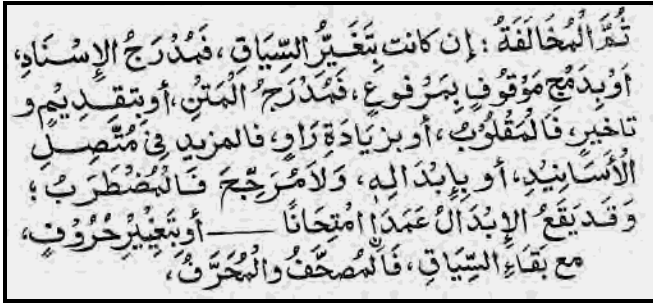 ثُمَّ الْمُخَالَفَةُ : إن كانت بِتَغَيُّرِ السِّيَاقِ، فَمُدْرَجُ الإِسْنَادِ،
أوْ بِدَمْجِ مَوْقُوفٍ بِمَرْفوعٍ، فَمُدْرَجُ الْمَتْنِ، أو بتقديمٍ و
تاخيرٍ، فَالمَقْلُوبُ، أو بزيَادَةِ رَاوٍ، فالمزيد فِىْ مُتَّصِلِ
الْأَسَانِيْدِ، أو بِإِبْدَالِهٖ، وَلاَ مُرَجِّحَ فَالْمُضْطَرَبُ؛
وَقَد يَقَعُ الإِبْدَالُ عَمَدًا امْتِحَانًا ـــــ أو بِتَغْيِيْرِ حُرُوْفٍ،
مع بَقَاءِ السِّيَاقِ، فَالْمُصَحَّفُ والْمُحَرَّفُ،